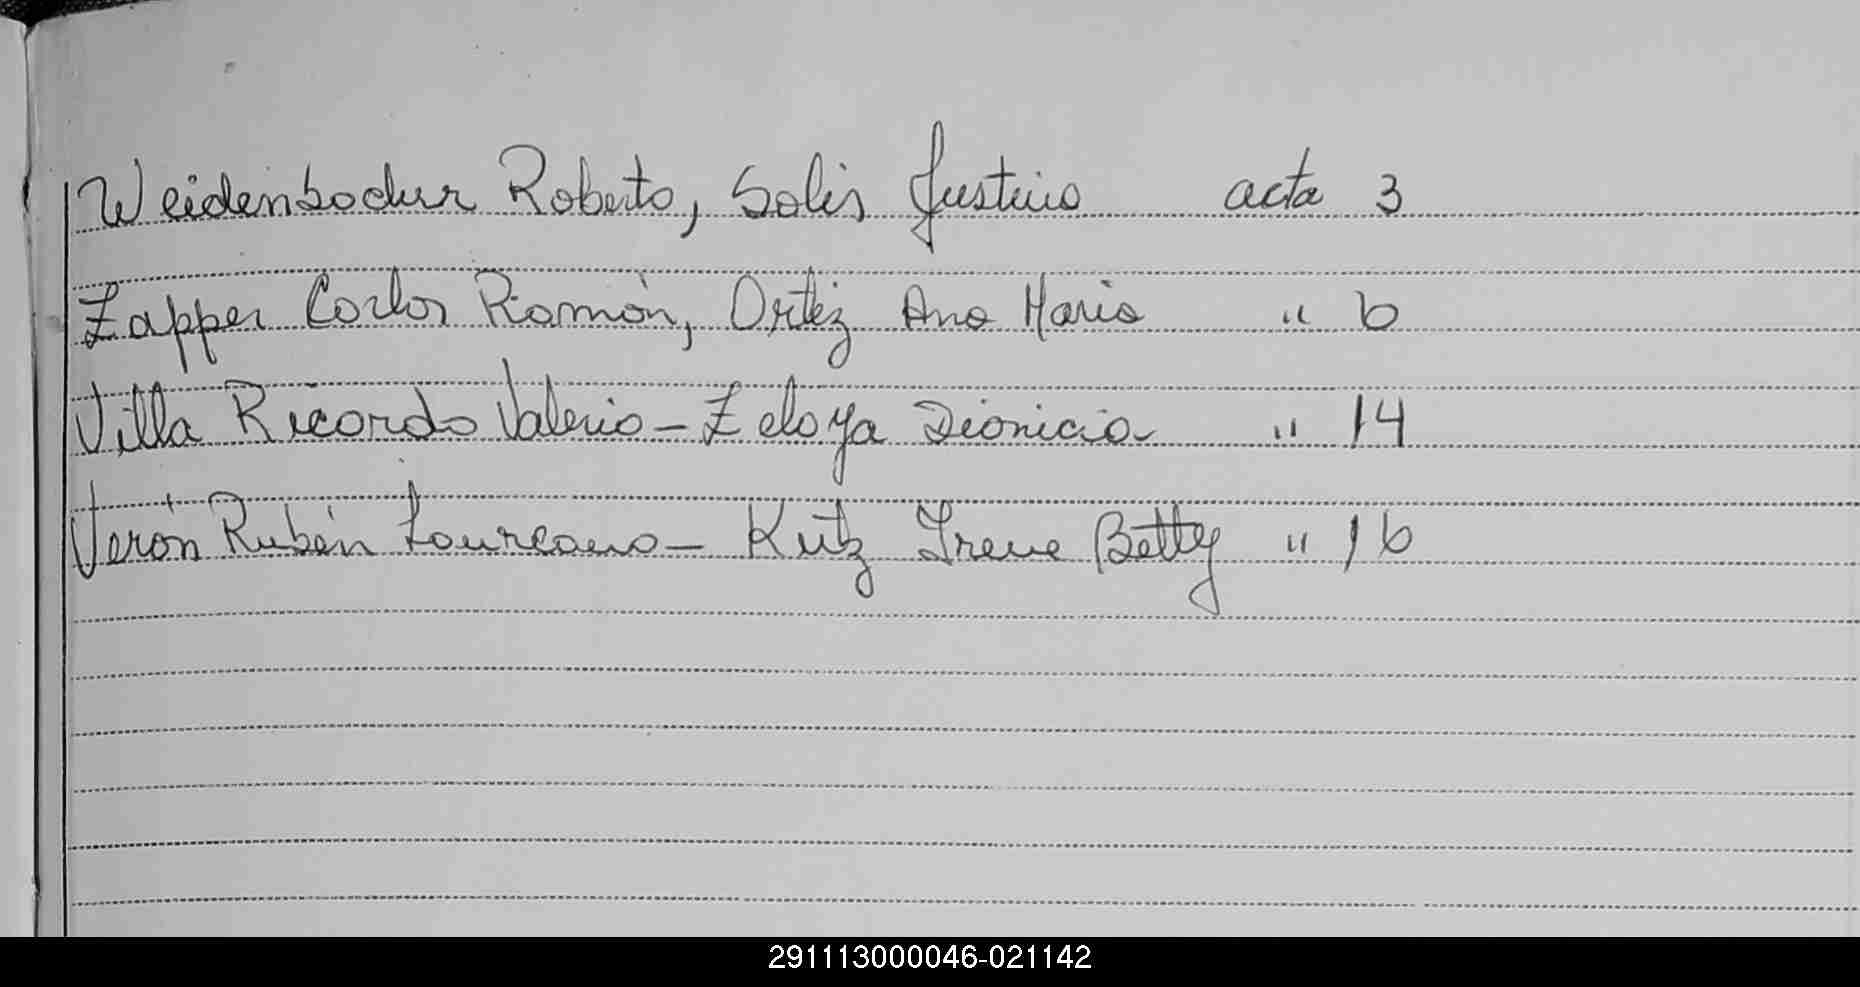 Weidensodur Roberto, Solis Justino acta 3
Zapper Carlos Ramón, Ortiz Ana Maria " 6
Villa Ricardo Valerio - Zeloya Dionicia " 14
Verón Rubén Laureano - Kutz Irene Betty " 16
291113000046-021142